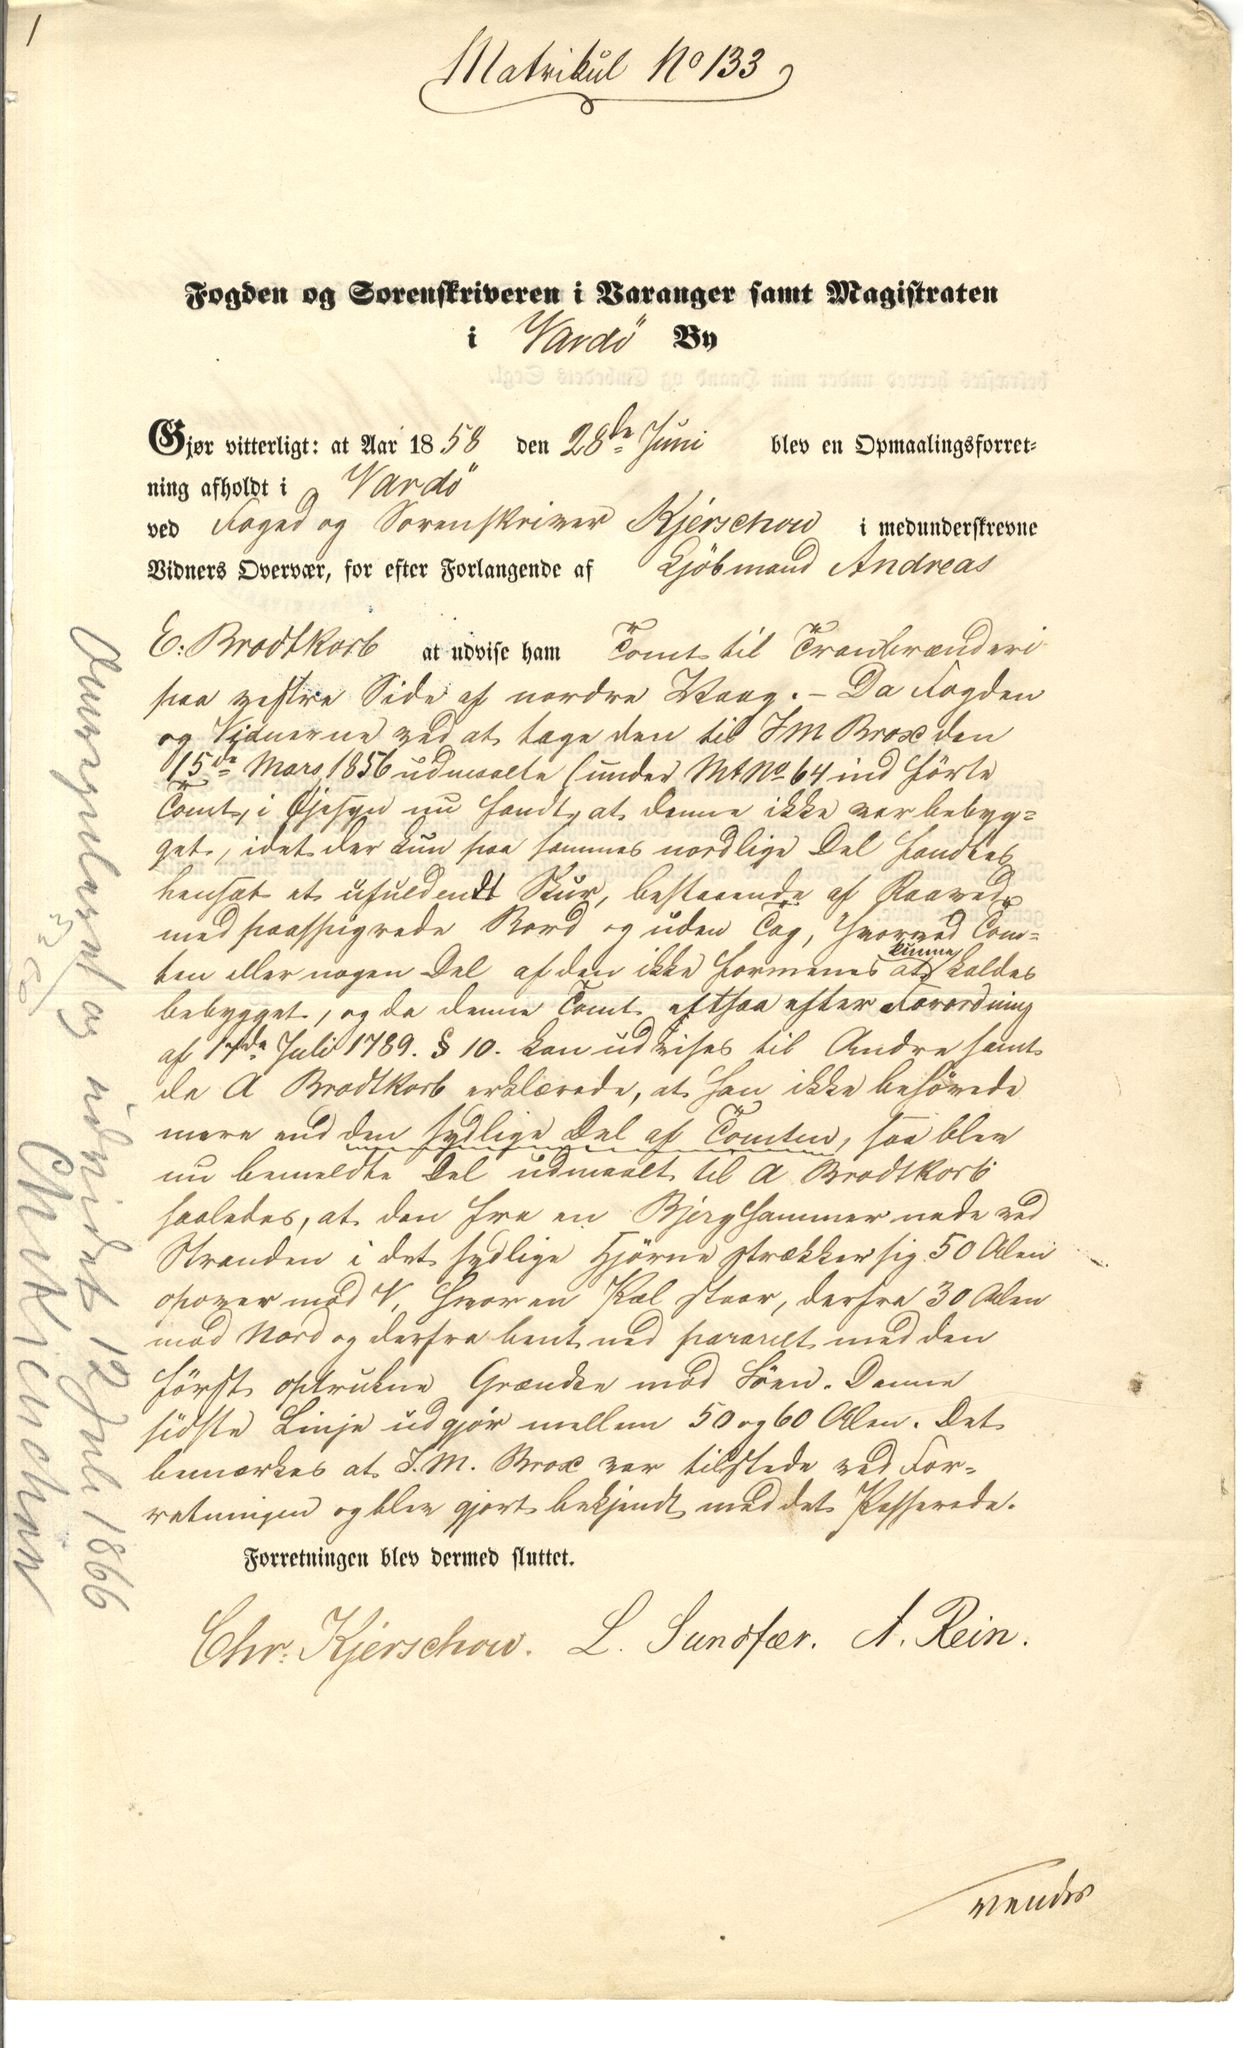 1
Matrikul No 133
Fogden og Sorenskriveren i Varanger samt Magistraten
i Vardö By
Gjør vitterligt: at Aar 1858 den 28de Juni blev en Opmaalingsforret-
ning afholdt i Vardö
ved Foged og Sorenskriver Kjerschow i medunderskrevne
Vidners Overvær, for efter Forlangende af Kjöbmand Andreas
E. Brodtkorb at udvise ham Tomt til Tranbrænderi
paa vestre Side af nordre Vaag. – Da Fogden
og Vidnerne ved at tage den til I M Brox den
15de Mars 1856 udmaalte (under Mt No 64 indförte
Tomt, i Öjesyn nu fandt, at denne ikke var bebyg=
get, idet der kun paa sammes nordlige Del fandtes
hensat et ufuldendt Skur, bestaaende af Raaved
med paaspigrede Bord og uden Tag, hvorved Tom=
ten eller nogen Del af den ikke formenes at kunne kaldes
bebygget, og da denne Tomt altsaa efter Forordning
af 17de Juli 1789. § 10. kan udvises til Andre samt
da A Brodtkorb erklærede, at han ikke behövede
mere end den sydlige Del af Tomten, saa blev
nu bemeldte Del udmaalt til A Brodtkorb
saaledes, at den fra en Bjerghammer nede ved
Stranden i det sydlige Hjörne strækker sig 50 Alen
opover mod V, hvor en Pæl staar, derfra 30 Alen
mod Nord og derfra bent ned pararelt med den
först optrukne Grændse mod Söen. Denne
sidste Linje udgjör mellem 50 og 60 Alen. Det
bemærkes at I. M. Brox var tilstede ved For=
retningen og blev gjort bekjendt med det Passerede.
Forretningen blev dermed sluttet.
Chr. Kjerschow. L. Sundfær. A. Rein.
vendes
og udvidet 12 Juli 1866